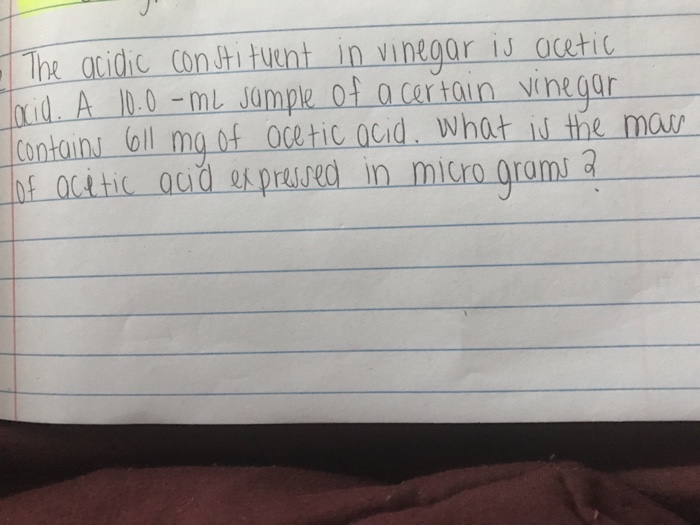 The acidic constituent in vinegar is acetic
acid. A 10.0-mL sample of a certain vinegar
contains 611 mg of acetic acid. What is the mass
of acetic acid expressed in micro grams?